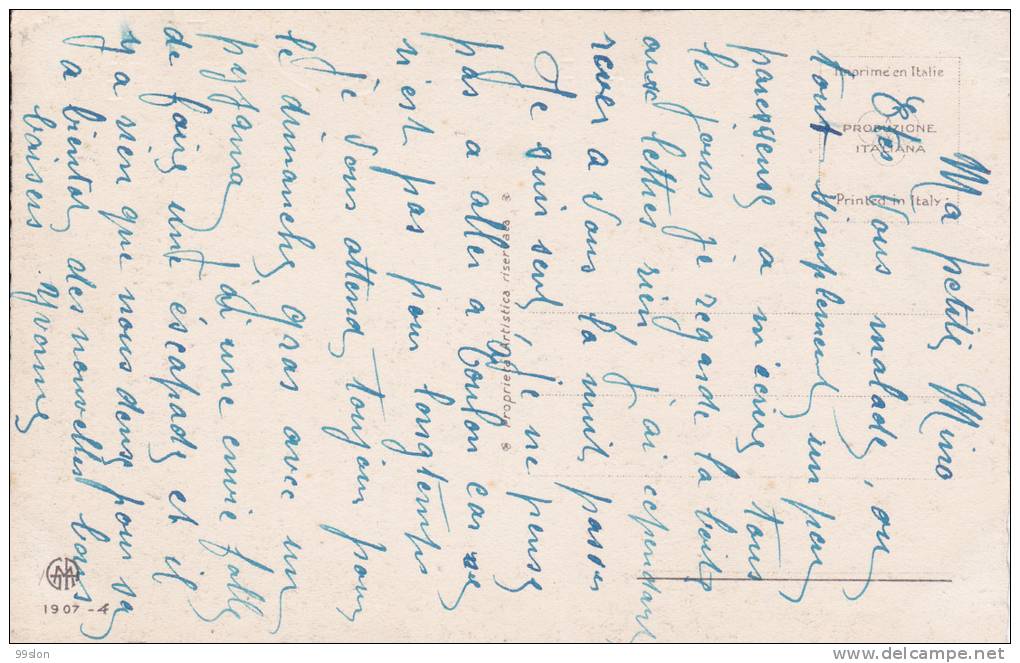 Ma petite Mino
Etes vous malade, ou
tout simplement un peu
pareseuse a m'ecrire tous
les jours je regarde la boite
aux lettres rien J'ai cependant
rever a vous la nuit passer
Je suis seul je ne pense
pas a aller a Toulon car ce
n'est pas pour longtemps
Je vous attend toujour pour
le dimanche gras avec un
pyjama J'ai une envie folle
de faire une éscapade et il
n y a rien que nous deux pour sa
J a bientot des nouvelles bons
baisers Yvonne
Imprimé en Italie
PRODUZIONE
ITALIANA
Printed in Italy
Proprietà Artistica riservata
1907 - 4
99slon
delcampe.net